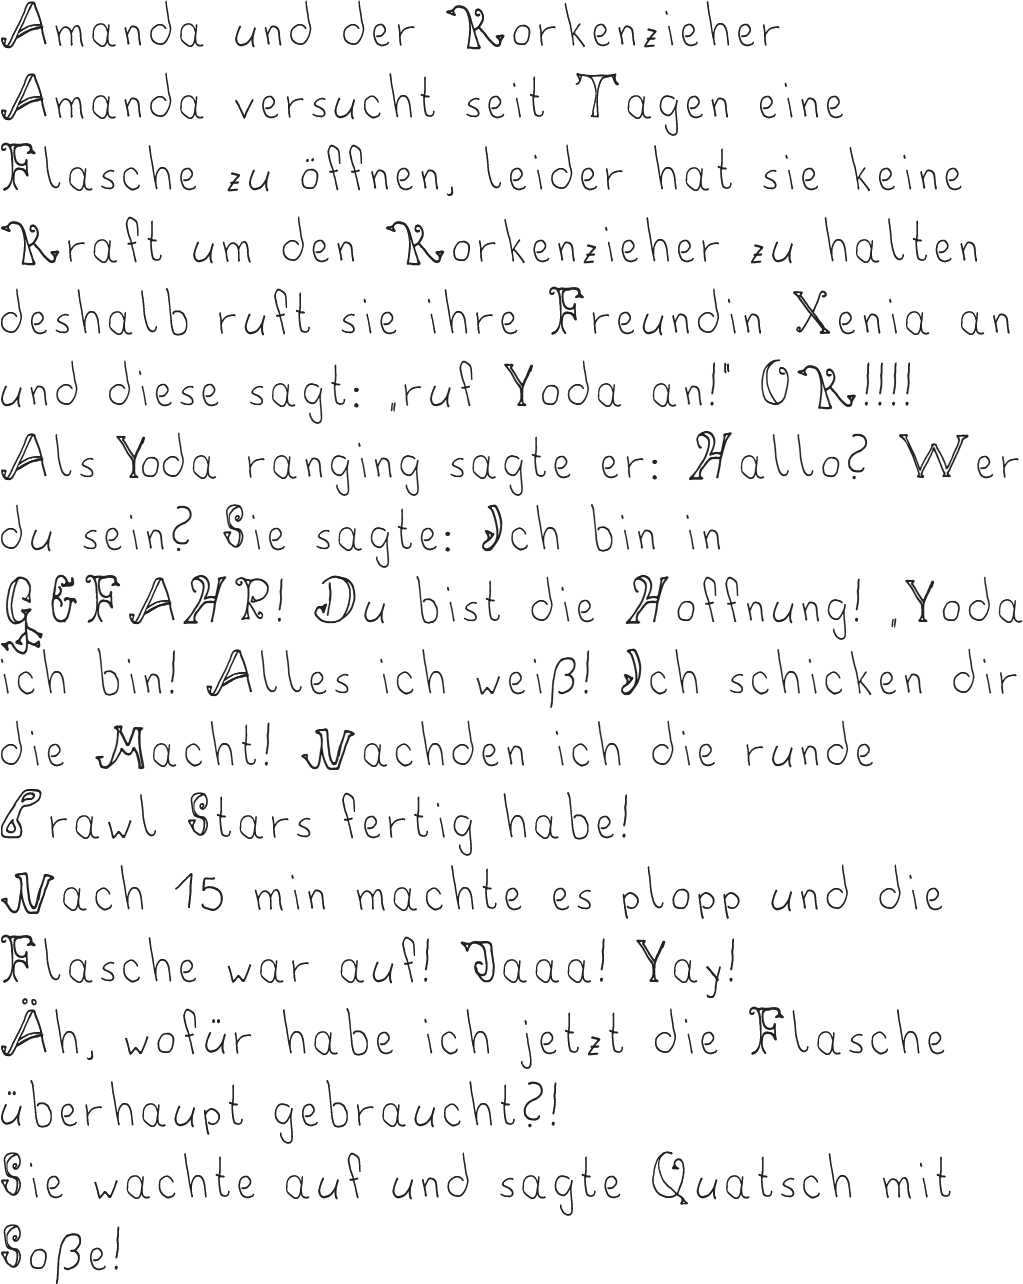 Amanda und der Korkenzieher
Amanda versucht seit Tagen eine
Flasche zu öffnen, leider hat sie keine
Kraft um den Korkenzieher zu halten
deshalb ruft sie ihre Freundin Xenia an
und diese sagt: „ruf Yoda an!" OK!!!!
Als Yoda ranging sagte er: Hallo? Wer
du sein? Sie sagte: Ich bin in
GEFAHR! Du bist die Hoffnung! „Yoda
ich bin! Alles ich weiß! Ich schicken dir
die Macht! Nachden ich die runde
Brawl Stars fertig habe!
Nach 15 min machte es plopp und die
Flasche war auf! Jaaa! Yay!
Äh, wofür habe ich jetzt die Flasche
überhaupt gebraucht?!
Sie wachte auf und sagte Quatsch mit
Soße!